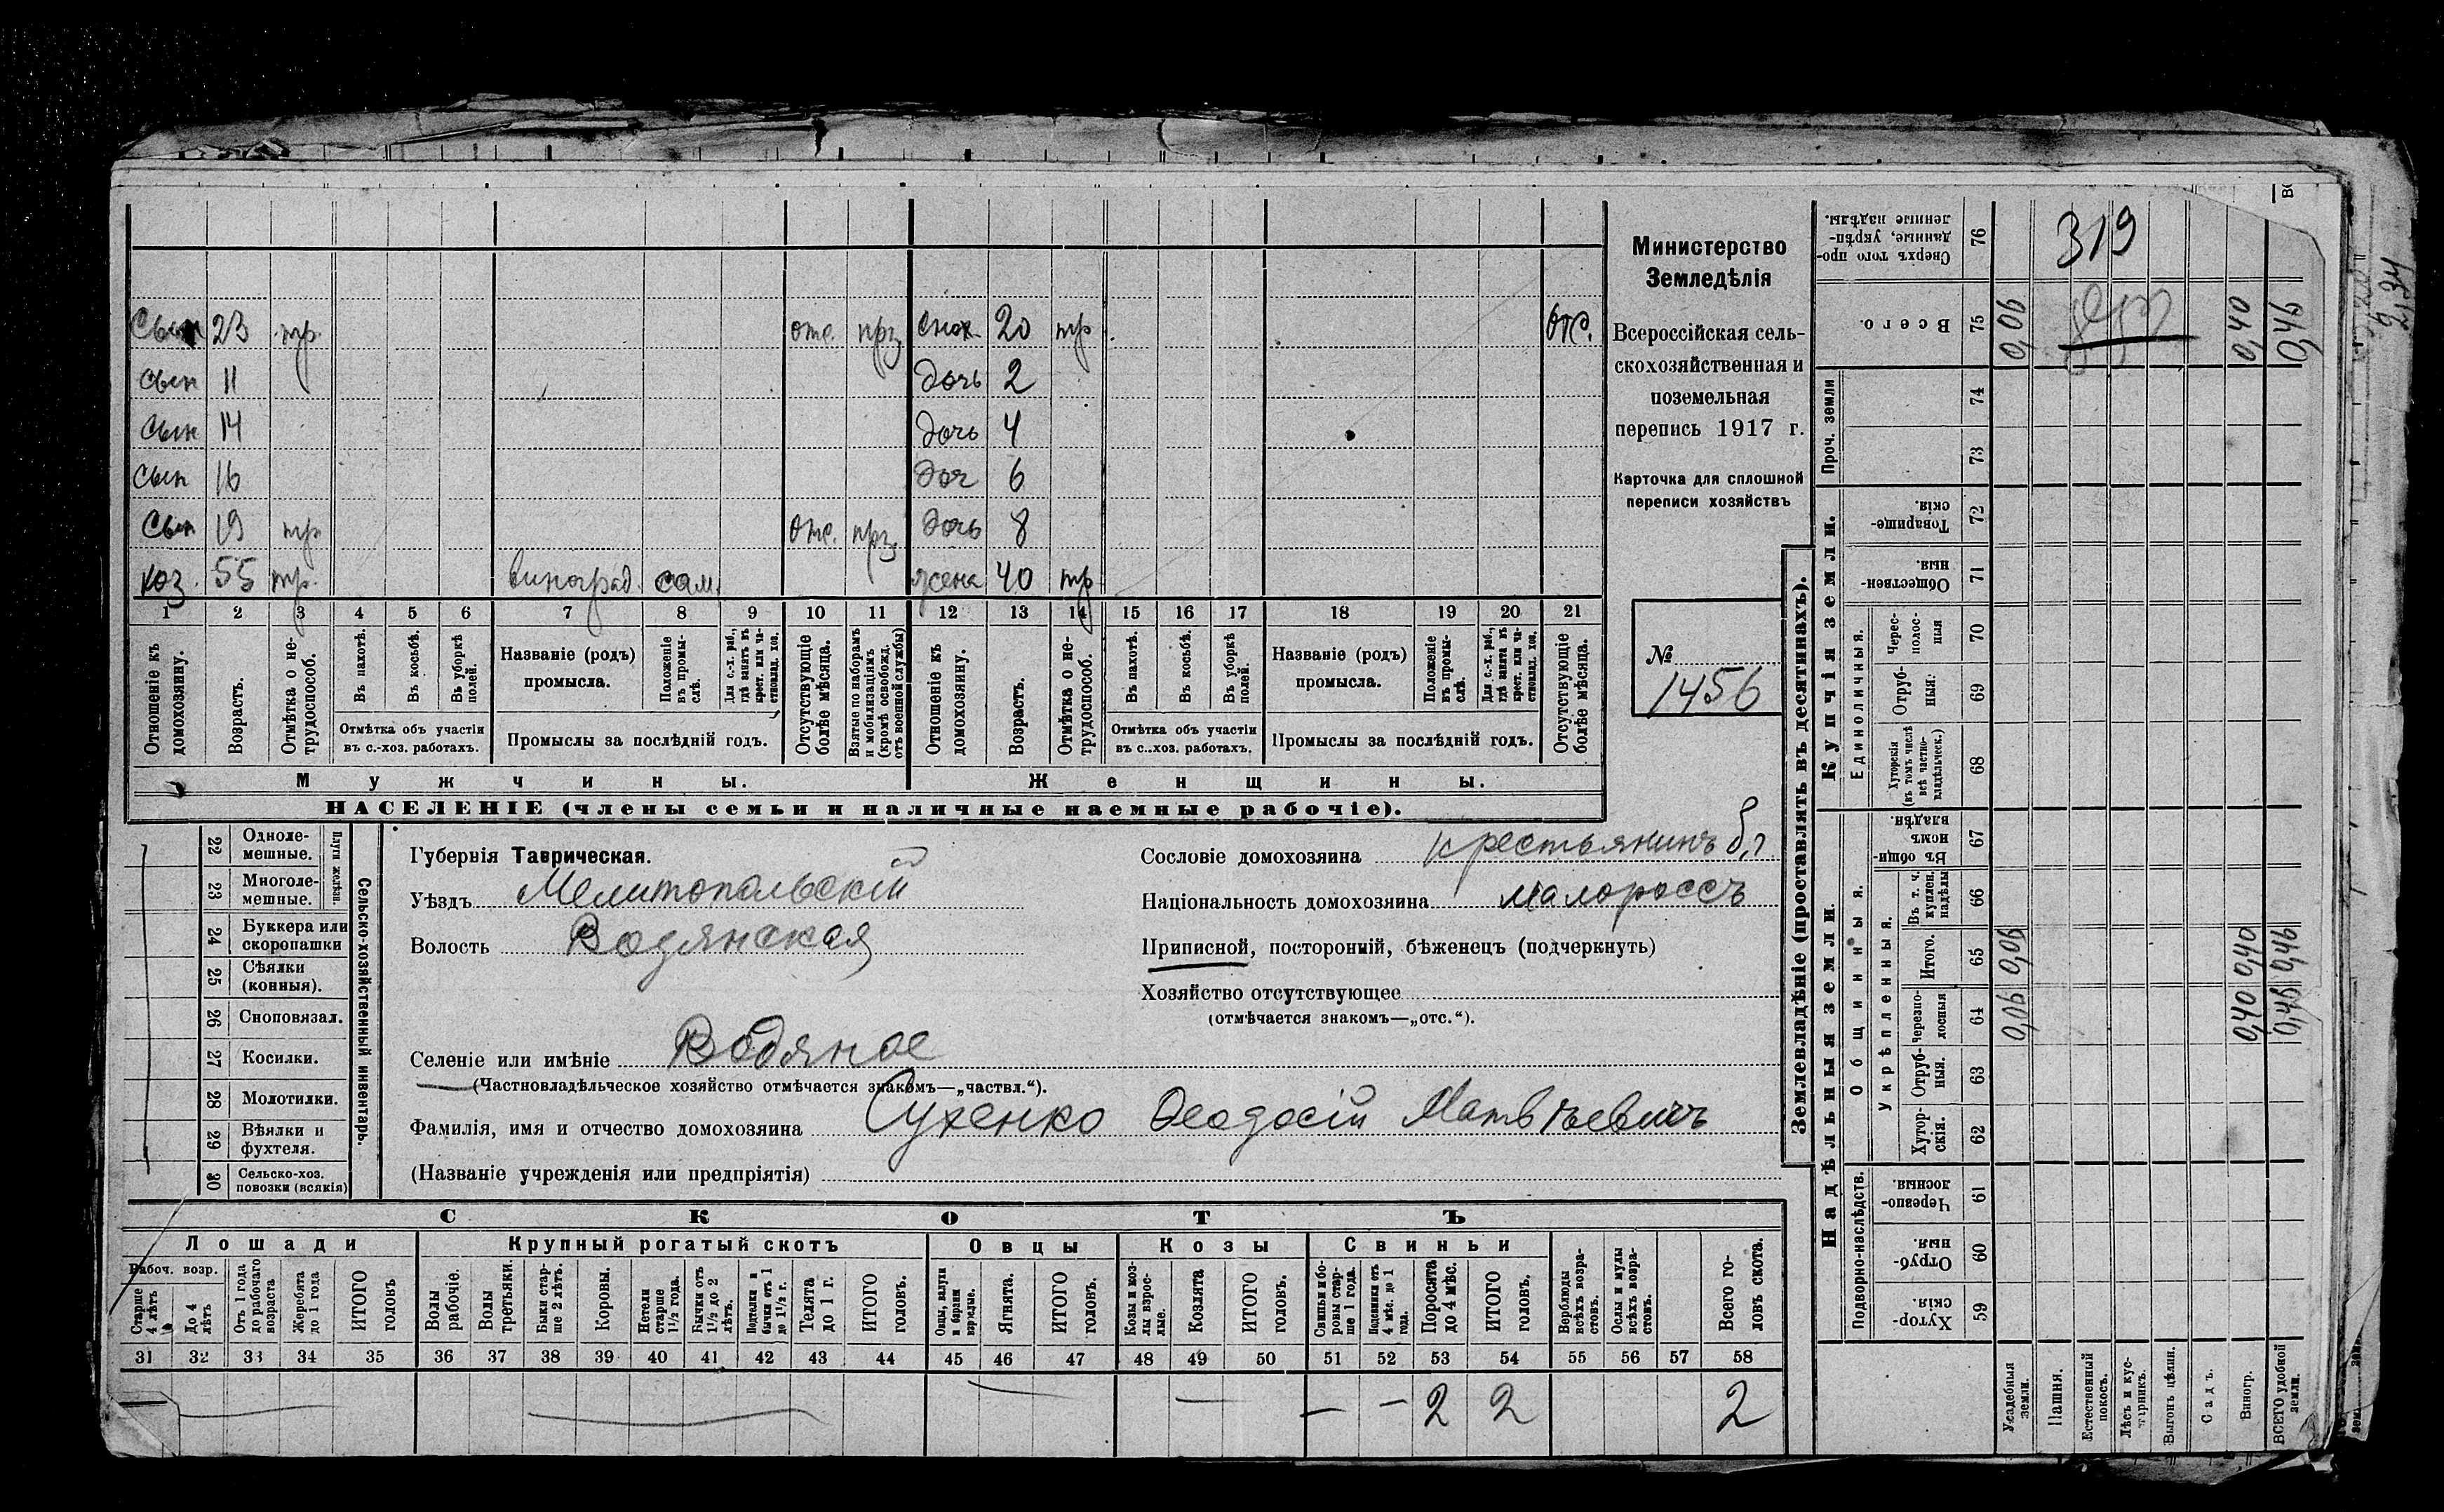 Сын 23 тр. отс. прз. снох. 20 тр. отс.
сын 11 дочь 2
сын 14 дочь 4
сын 16 доч 6
сын 19 тр. отс. прз. дочь 8
хоз. 55 тр. виноград. сам. жена 40 тр.
1 2 3 4 5 6 7 8 9 10 11 12 13 14 15 16 17 18 19 20 21
Отношеніе къ домохозяину.
Возрастъ.
Отмѣтка о не-
трудоспособ.
Въ пахотѣ.
Въ косьбѣ.
Въ уборкѣ полей.
Отмѣтка объ участіи
въ с.-хоз. работахъ.
Названіе (родъ)
промысла.
Положеніе
въ промы-
слѣ.
Для с.-х. раб.,
гдѣ занятъ въ
крест. или ча-
стновлад. хоз.
Промыслы за послѣдній годъ.
Отсутствующіе
болѣе мѣсяца.
Взятые по наборамъ
и мобилизаціямъ
(кромѣ освобожд.
отъ военной службы)
Отношеніе къ
домохозяину.
Возрастъ.
Отмѣтка о не-
трудоспособ.
Въ пахотѣ.
Въ косьбѣ.
Въ уборкѣ
полей.
Отмѣтка объ участіи
въ с.-хоз. работахъ.
Названіе (родъ)
промысла.
Положеніе
въ промы-
слѣ.
Для с.-х. раб.,
гдѣ занята въ
крест. или ча-
стновлад. хоз.
Промыслы за послѣдній годъ.
Отсутствующіе
болѣе мѣсяца.
Мужчины.
Женщины.
НАСЕЛЕНІЕ (члены семьи и наличные наемные рабочіе).
Министерство
Земледѣлія
Всероссійская сель-
скохозяйственная и
поземельная
перепись 1917 г.
Карточка для сплошной
переписи хозяйствъ
№
1456
22 Одноле-
мешные.
23 Многоле-
мешные.
Плуги желѣзн.
24 Буккера или
скоропашки
25 Сѣялки
(конныя).
26 Сноповязал.
27 Косилки.
28 Молотилки.
29 Вѣялки и
фухтеля.
30 Сельско-хоз.
повозки (всякія)
Сельско-хозяйственный инвентарь.
Губернія Таврическая.
Уѣздъ Мелитопольскій
Волость Водянская
Селеніе или имѣніе Водяное
(Частновладѣльческое хозяйство отмѣчается знакомъ—„частвл.“).
Фамилія, имя и отчество домохозяина Сухенко Ѳеодосій Матвѣевичъ
(Названіе учрежденія или предпріятія)
Сословіе домохозяина крестьянинъ
Національность домохозяина малороссъ
Приписной, посторонній, бѣженецъ (подчеркнуть)
Хозяйство отсутствующее
(отмѣчается знакомъ—„отс.“).
СКОТЪ
Лошади
Крупный рогатый скотъ
Овцы
Козы
Свиньи
Рабоч. возр.
Старше
4 лѣтъ
До 4
лѣтъ
Отъ 1 года
до рабочаго
возраста
Жеребята
до 1 года
ИТОГО
головъ
Волы
рабочіе.
Волы
третьяки.
Быки стар-
ше 2 лѣтъ.
Коровы.
Нетели
старше
1½ года.
Бычки отъ
1½ до 2
лѣтъ.
Подтелки и
бычки отъ 1
до 1½ г.
Телята
до 1 г.
ИТОГО
головъ.
Овцы, валухи
и бараны
взрослые.
Ягнята.
ИТОГО
головъ.
Козы и коз-
лы взрос-
лые.
Козлята
ИТОГО
головъ.
Свиньи и бо-
ровы стар-
ше 1 года.
Подсвинки отъ
4 мѣс. до 1
года.
Поросята
до 4 мѣс.
ИТОГО
головъ.
Верблюды
всѣхъ возра-
стовъ.
Ослы и мулы
всѣхъ возра-
стовъ.
Всего го-
ловъ скота.
31 32 33 34 35 36 37 38 39 40 41 42 43 44 45 46 47 48 49 50 51 52 53 54 55 56 57 58
— — — — — — 2 2 2
Землевладѣніе (проставлять въ десятинахъ).
Купчія земли.
Надѣльныя земли.
Проч. земли
Единоличныя.
Общинныя.
Укрѣпленныя.
Подворно-наслѣдств.
Сверхъ того про-
данные, укрѣп-
ленные надѣлы.
76
319
Всего.
75
0,06 0,40 0,46
74
73
Товарище-
скія
72
Обществен-
ныя.
71
Черес-
полос-
ныя
70
Отруб-
ныя.
69
Хуторскія
(въ томъ числѣ
всѣ частно-
владѣльческ.)
68
Въ общин-
номъ
владѣн.
67
Въ т. ч.
куплен.
надѣлы
66
Итого.
65
0,06 0,40 0,46
Черезпо-
лосныя
64
0,06 0,40 0,46
Отруб-
ныя.
63
Хутор-
скія.
62
Черезпо-
лосныя.
61
Отруб-
ныя.
60
Хутор-
скія.
59
Усадебныя
земли.
Пашня.
Естественный
покосъ.
Лѣсъ и кус-
тарникъ.
Выгонъ цѣлин.
Садъ.
Виногр.
ВСЕГО удобной
земли.